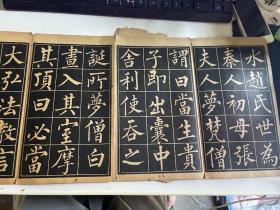 水趙氏世為
秦人初母張
夫人夢梵僧
謂曰當生貴
子即出囊中
舍利使吞之
誕所夢僧白
晝入其室摩
其頂曰必當
大弘法教言